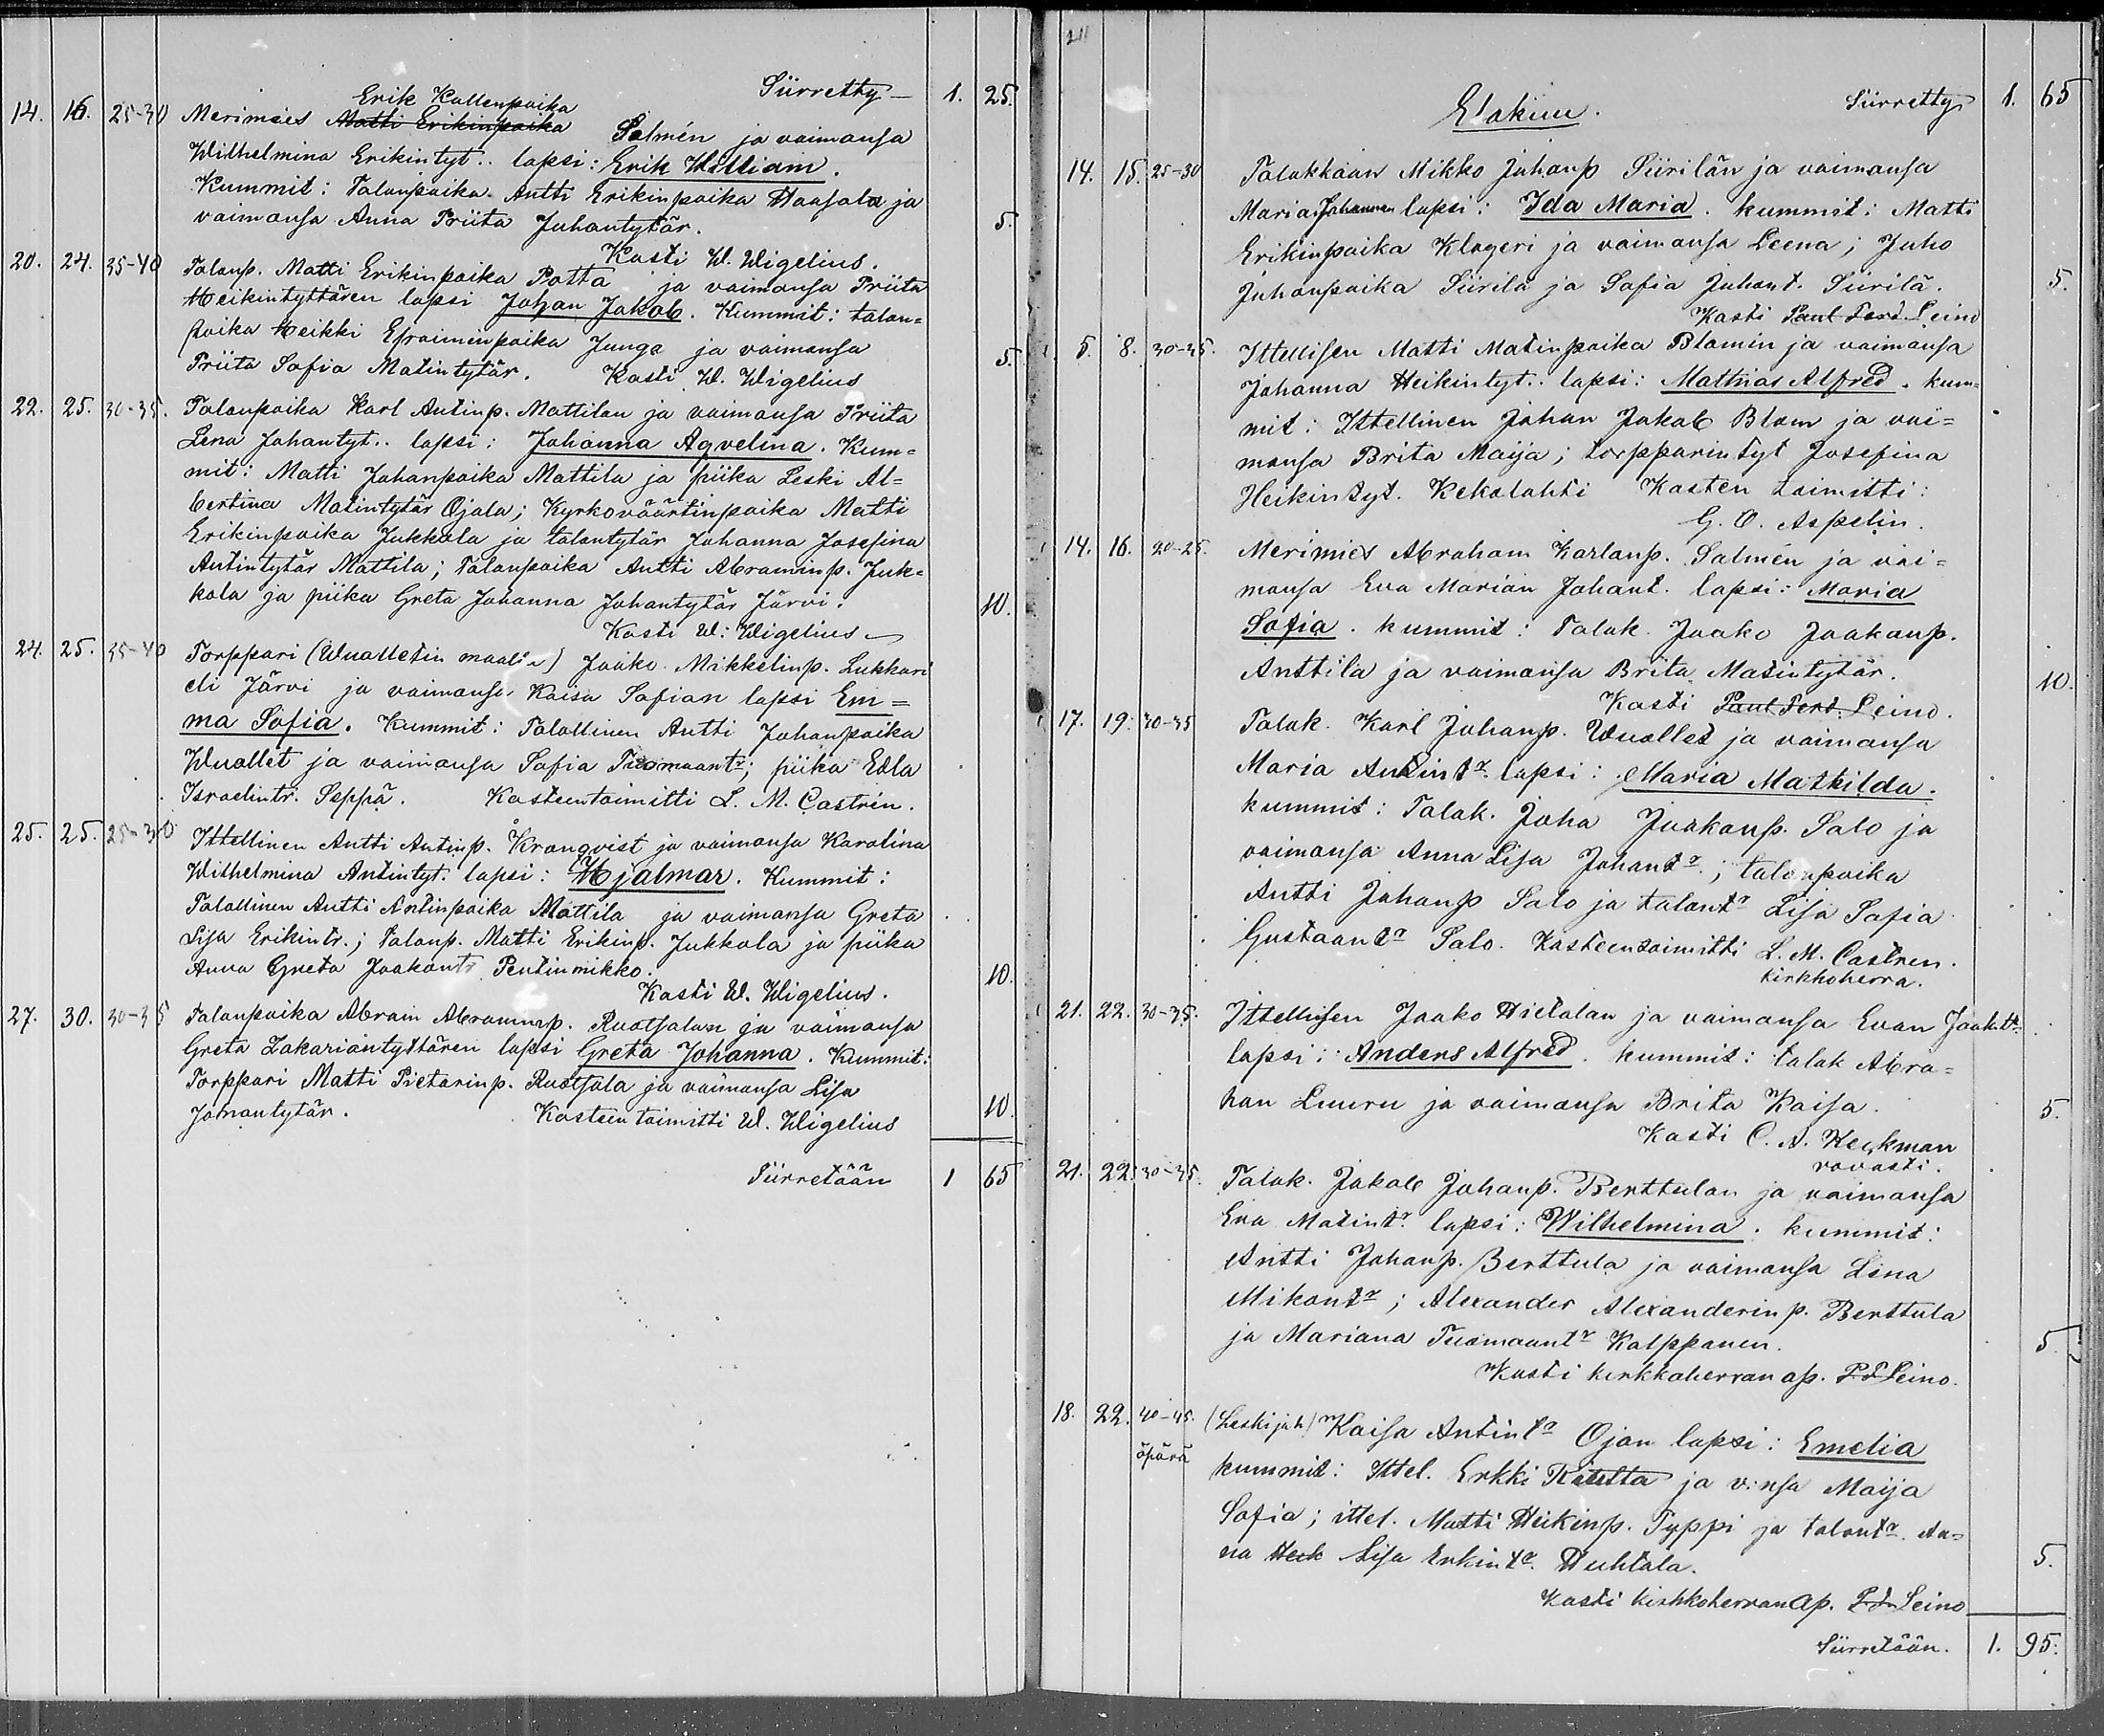 Siirretty — 1. 25.
Erik Kallenpoika
14. 16. 25-30 Merimies Matti Erikinpoika Salmén ja vaimonsa
Wilhelmina Erikintyt.. lapsi: Erik William.
Kummit: Talonpoika. Antti Erikinpoika Haapala ja
vaimonsa Anna Priita Juhantytär. 5.
Kasti W. Wigelius.
20. 24. 35-40 Talonp. Matti Erikinpoika Potta ja vaimonsa Priita
Heikintyttären lapsi Johan Jakob. Kummit: talon=
poika Heikki Efraiminpoika Junga ja vaimonsa
Priita Sofia Matintytär. Kasti W. Wigelius 5.
22. 25. 30-35. Talonpoika Karl Antinp. Mattilan ja vaimonsa Priita
Lena Johantyt.. lapsi: Johanna Aqvelina. Kum=
mit: Matti Johanpoika Mattila ja piika Leski Al=
bertina Matintytär Ojala; Kyrkoväärtinpoika Matti
Erikinpoika Jukkola ja talontytär Johanna Josefina
Antintytär Mattila; Talonpoika Antti Abraminp. Juk=
kola ja piika Greta Johanna Johantytär Järvi. 10.
Kasti W: Wigelius
24. 25. 35-40 Torppari (Wualletin maalla) Jaako Mikkelinp. Lukkari
eli Järvi ja vaimonsa Kaisa Sofian lapsi Em=
ma Sofia. Kummit: Talollinen Antti Johanpoika
Wuollet ja vaimonsa Sofia Tuomaantr; piika Edla
Israelintr. Seppä. Kasteen toimitti L. M. Castrén.
25. 25. 25-30 Ittellinen Antti Antinp. Kronqvist ja vaimonsa Karolina
Wilhelmina Antintyt. lapsi: Hjalmar. Kummit:
Talollinen Antti Antinpoika Mattila ja vaimonsa Greta
Lisa Erikintr.; Talonp. Matti Erikinp. Jukkola ja piika
Anna Greta Jaakontr Pentinmikko. 10.
Kasti W. Wigelius.
27. 30. 30-35 Talonpoika Abram Abraminp. Ruotsalan ja vaimonsa
Greta Zakariantyttären lapsi Greta Johanna. Kummit:
Torppari Matti Pietarinp. Ruotsala ja vaimonsa Lisa
Johantytär. Kasteen toimitti W. Wigelius 10.
Siirretään 1 65
211
Elokuu. Siirretty 1. 65
14. 15. 25-30 Talokkaan Mikko Juhanp Siirilän ja vaimonsa
Maria Johannan lapsi: Ida Maria. kummit: Matti
Erikinpoika Klageri ja vaimonsa Leena; Juho
Juhonpoika Siirilä ja Sofia Juhont. Siirilä. 5.
Kasti Paul Ferd. Leino
5. 8. 30-35. Ittellisen Matti Matinpoika Blomin ja vaimonsa
Johanna Heikintyt.. lapsi: Mathias Alfred. kum=
mit: Ittellinen Johan Jakob Blom ja vai=
monsa Brita Maija; torpparintyt Josefina
Heikintyt. Kekolahti Kasten toimitti:
G. O. Aspelin.
14. 16. 20-25. Merimies Abraham Karlanp. Salmén ja vai=
monsa Eva Marian Johant. lapsi: Maria
Sofia. kummit: Talok. Jaako Jaakonp.
Anttila ja vaimonsa Brita Matintytär. 10.
Kasti Paul Ferd. Leino.
17. 19. 30-35 Talok. Karl Johanp. Wuollet ja vaimonsa
Maria Antintr. lapsi: Maria Mathilda.
kummit: Talok. Joha Jaakonp. Salo ja
vaimonsa Anna Lisa Johantr.; talonpoika
Antti Johanp Salo ja talontr Lisa Sofia
Gustaantr Salo. Kasteen toimitti L. M. Castren.
kirkhoherra.
21. 22. 30-35. Ittellisen Jaako Hietalan ja vaimonsa Evan Jaakontr.
lapsi: Anders Alfred. kummit: talok Abra=
han Luuru ja vaimonsa Brita Kaisa. 5.
Kasti C. A. Heckman
rovasti.
21. 22. 30-35. Talok. Jakob Johanp. Berttulan ja vaimonsa
Eva Matintr. lapsi: Wilhelmina. kummit:
Antti Johanp. Berttula ja vaimonsa Lena
Mikontr; Alexander Alexanderinp. Berttula
ja Mariana Tuomaantr Kalppanen. 5
Kasti kirkkoherran ap. P F Leino.
18. 22. 40-45. (Leskijäh) Kaisa Antintr Ojan lapsi: Emelia
äpärä kummit: Ittel. Erkki ja v:nsa Maija
Sofia; ittel. Matti Heikinp. Typpi ja talontr. An=
na Heik Lisa Erkintr. Huhtala. 5.
Kasti kirkkoherran ap. P F Leino
Siirretään. 1. 95.